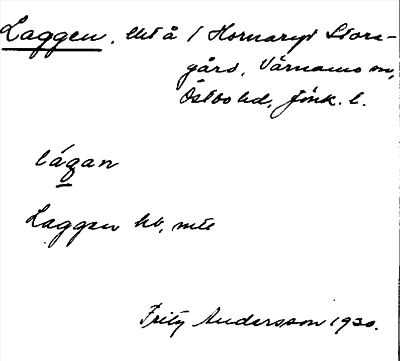 Laggen, utå i Hornaryd Stora-
gård, Värnamo sn,
Östbo hd, Jönk. l.
lágan
Laggen hb, mte
Fritz Andersson 1930.